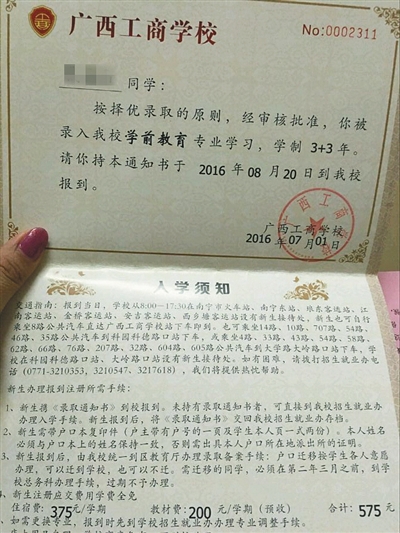 广西工商学校
No:0002311
同学：
按择优录取的原则，经审核批准，你被
录入我校学前教育专业学习，学制 3+3 年。
请你持本通知书于 2016 年 08 月 20 日到我校
报到。
广西工商学校
2016 年 07 月 01 日
入学须知
交通指南：报到当日，学校从8:00～17:30在南宁市火车站、南宁东站、琅东客运站、江
南客运站、金桥客运站、安吉客运站、西乡塘客运站设有新生接待处，新生也可自行
乘坐8路公共汽车直达广西工商学校站下车即到。也可乘坐14路、10路、707路、54路、
46路、35路公共汽车到科园科德路口站下车，或乘坐4路、33路、43路、54路、58路、
62路、66路、76路、207路、32路、604路、605路公共汽车到大学路大岭路口站下车，学
校在科园科德路口站、大岭路口站设有新生接待处。如有困难，请拨打招生就业办电
话（0771-3210353，3210547、3217618），我们将提供热忱帮助。
新生办理报到注册所需手续：
1、新生携《录取通知书》到校报到。未持有录取通知书者，可直接到我校招生就业办
办理入学手续。新生报到后，将《录取通知书》交回我校招生就业办存档。
2、新生需带户口本复印件（户主带有户号的一页及学生本人页一式两份）。本人姓名
必须与户口本上的姓名保持一致，否则需出具本人户口所在地派出所的证明。
3、新生报到后，由我校统一到区教育厅办理录取备案手续：户口迁移按学生各人意愿
办理，可以迁到学校，也可以不迁。需迁移的同学，必须在第二年三月之前，到学
校总务科办理手续，过期不予办理。
4、新生注册应交费用学费全免
住宿费：375元/学期 教材费：200 元/学期（预收） 合计：575 元
如需更换专业，报到时先到学校招生就业办办理专业调整手续。